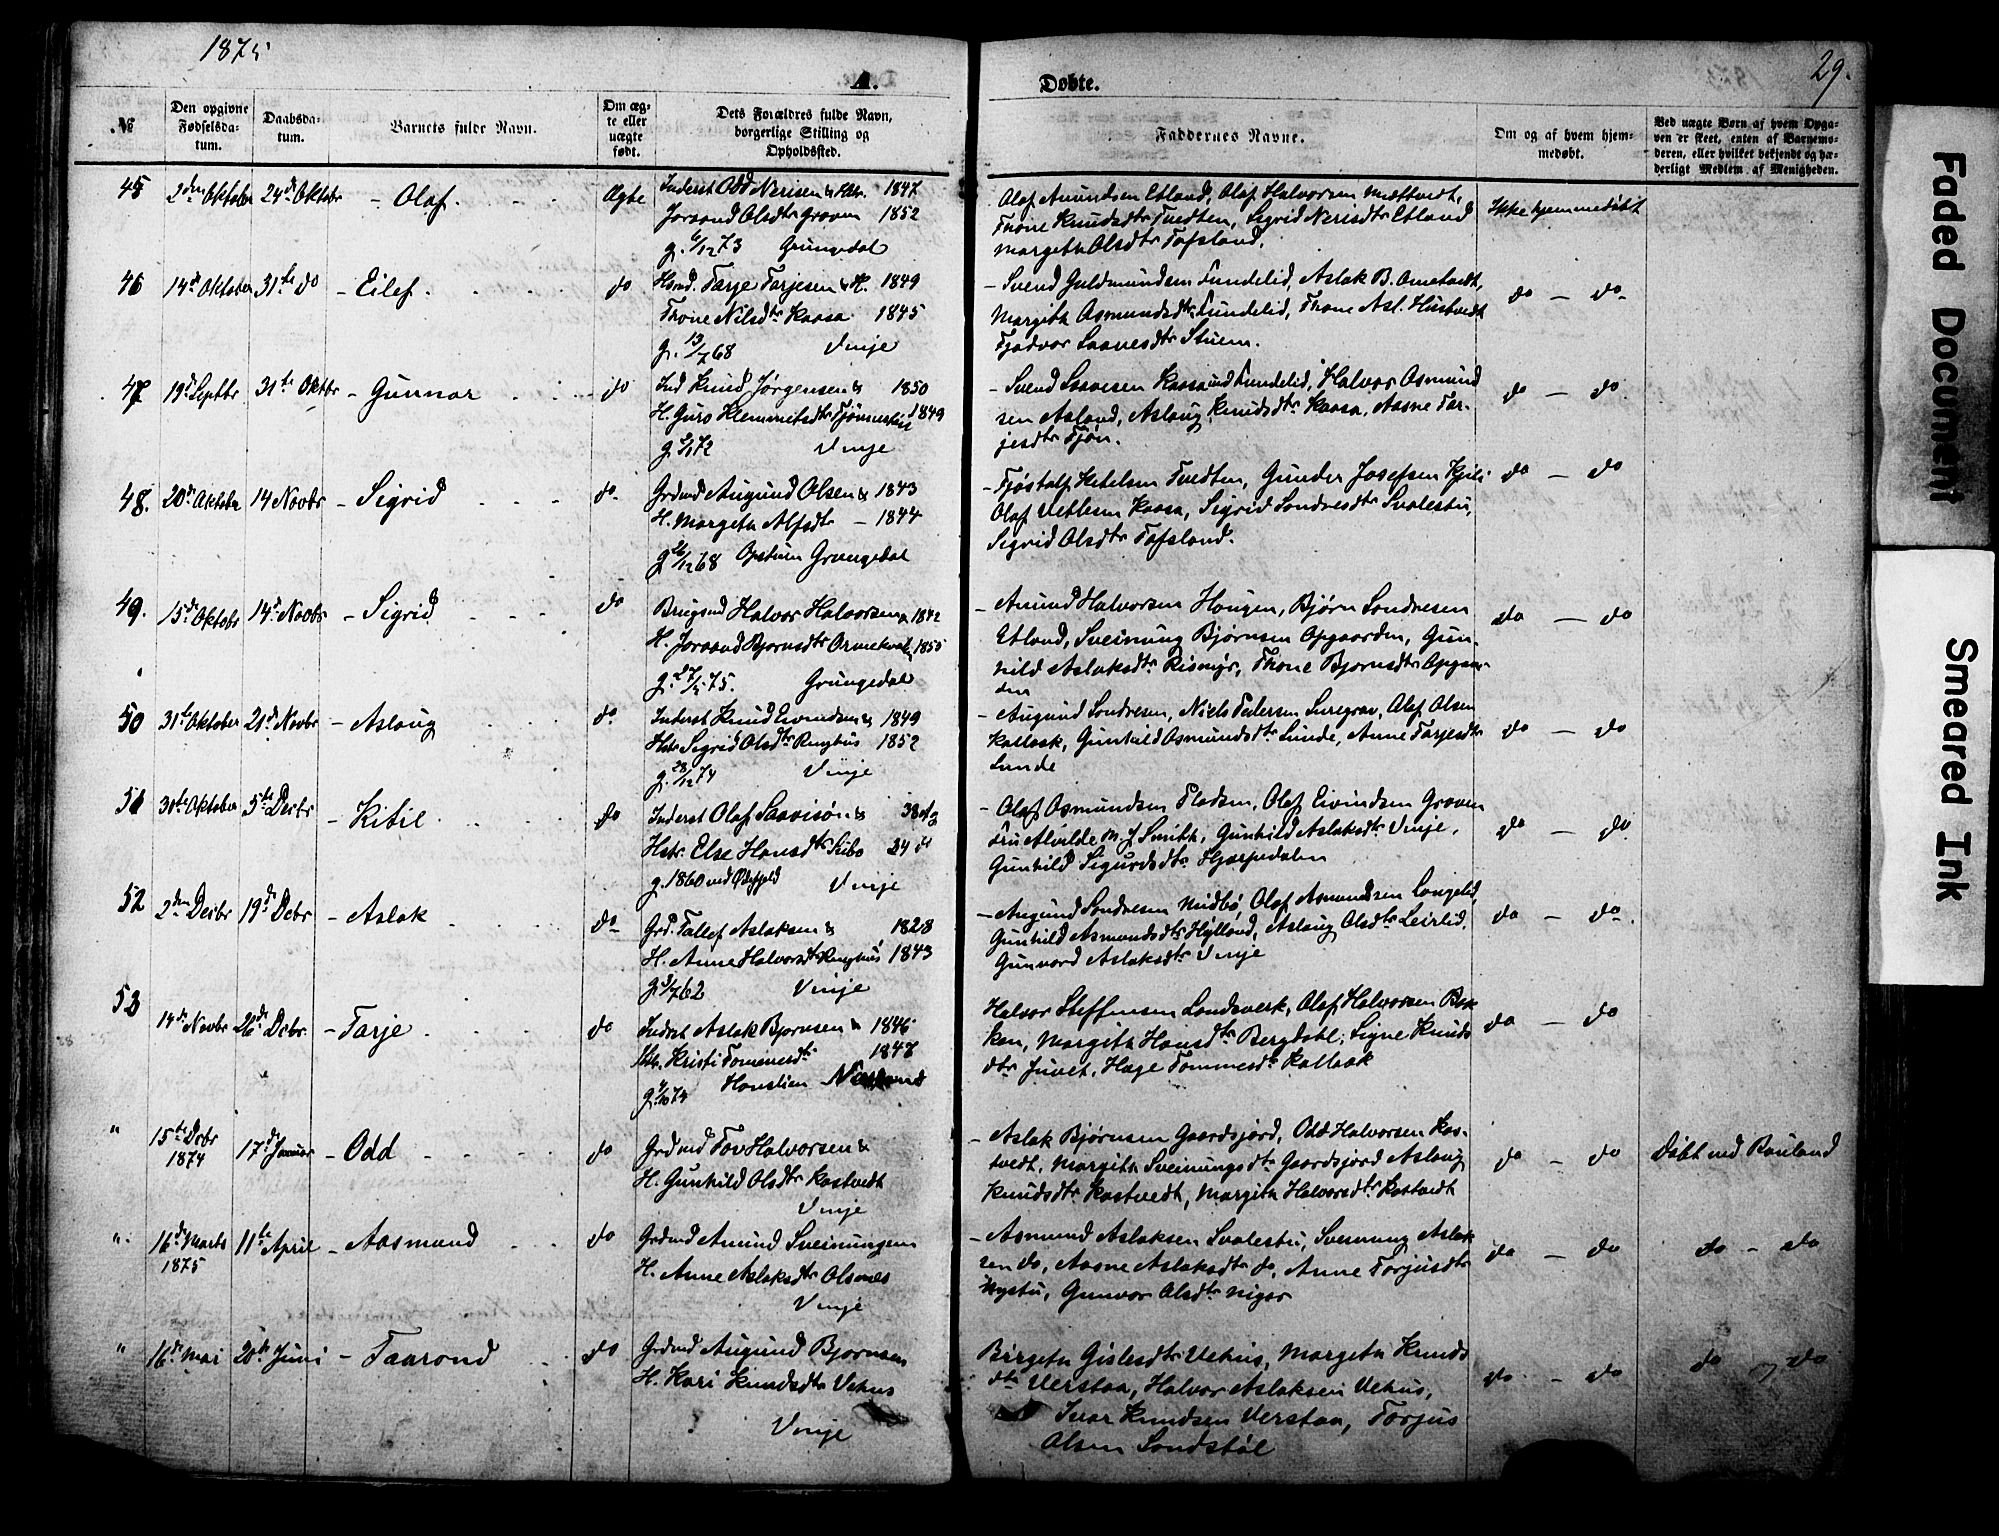 1875
A.
Døbte.
29.
№
Den opgivne
Fødselsda-
tum.
Daabsda-
tum.
Barnets fulde Navn.
Om æg-
te eller
uægte
født.
Dets Forældres fulde Navn,
borgerlige Stilling og
Opholdssted.
Faddernes Navne.
Om og af hvem hjem-
medøbt.
Ved uægte Børn af hvem Opga-
ven er skeet, enten af Barnemo-
deren, eller hvilket bekjendt og hæ-
derligt Medlem af Menigheden.
45 2den Oktober 24d Oktobr - Olaf. Ægte
Inderst Odd Nerisen & Hstr. 1847
Joraand Olsdtr Groven 1852
g. 6/12 73 Grungedal
Olaf Amundsen Edland, Olaf Halvorsen Midttvedt,
Thone Knudsdtr Tvedten, Sigrid Nerisdtr Edland
Margetha Olsdtr Tofsland.
Ikke hjemmedøbt
46 14d Oktober 31te do - Eilef. do
Hsmd. Tarje Tarjesen & H. 1849
Thone Nilsdtr Kaasa 1845
g. 13/7 68 Vinje
- Svend Guldmundsen Lundelid, Aslak B.
Margith Osmundsdtr Lundelid, Thone Asl. Hustvedt
do - do
47 19d Septbr 31te Oktbr - Gunnar do
Ind Knud Jørgensen & 1850
H. Guro Klemmetsdtr 1849
72 Vinje
- Svend Saavesen Kaasa Lundelid, Halvor Osmund
sen Asland, Aslaug Knudsdtr Kaasa, Aasne Tar-
jesdtr Tjøn.
do - do
48. 20de Oktober 14 Novbr - Sigrid do
Grdmd Augund Olsen & 1843
H. Margeta Alfsdtr - 1844
g 26/12 68 Grungedal
- Tjøstolf Ketelsen Tvedten, Gunder Josefsen
Olaf Vetlesen Kaasa, Sigrid Sondresdtr Svalestu,
Sigrid Olsdtr Tofsland.
do - do
49. 15de Oktobr 14d Novbr - Sigrid do
Brugsmd Halvor Halvorsen & 1842
H. Joraand Bjornsdtr 1855
g. 27/ 75. Grungedal
- Amund Halvorsen Haugen, Bjørn Sondresen
Edland, Sveinung Bjørnsen Opgaarden, Gun-
hild Aslaksdtr Rismyr, Thone Bjornsdtr Opgaar-
den
do - do
50 31te Oktober 21d Novbr - Aslaug do
Inderst Knud Eivindsen & 1849
Hstr Sigrid Olsdtr Ringhus 1852
g. 28/12 74 Vinje
- Augund Sondresen, Niels Pedersen, Olaf Olsen
Kallaak, Gunhild Osmundsdtr Lunde, Anne Tarjesdtr
Lunde
do - do
51 30te Oktober 5te Decbr - Kitil do
Inderst Olaf Saavisøn & 38
Hstr. Else Hansdtr Subo 24
g. 1860 Vinje
- Olaf Osmundsen Flodsen, Olaf Eivindsen Groven
Fru Alvilde M. J Smith, Gunhild Aslaksdtr Vinje,
Gunhild Sigurdsdtr Hjarpedalen
do - do
52 2den Decbr 19d Decbr - Aslak do
Grd. Tallef Aslaksen & 1828
H. Anne Halvorsdtr Ringhus 1843
g. 3/7 62 Vinje
- Augund Sondresen Midbø, Olaf Asmundsen Longelid,
Gunhild Asmundsdtr Hylland, Aslaug Olsdtr Leirlid,
Gunvord Aslaksdtr Vinje
do - do
53 14de Novbr 26de Decbr - Tarje do
Inderst Aslak Bjornsen & 1846
Hstr. Kristi Tommesdtr 1847
Honslien
Halvor Steffensen Landsverk, Olaf Halvorsen Bak
ken, Margith Hansdtr Bergdahl, Signe Knuds
dtr Juvet, Hæge Tommesdtr Kallaak
do - do
" 15te Decbr
1874 17de Januar - Odd do
Grdmd Tov Halvorsen &
H. Gunhild Olsdtr Kostvedt
Vinje
- Aslak Bjørnsen Gaardsjord, Odd Halvorsen Kos-
tvedt, Margith Sveinungsdtr Gaardsjord Aslaug
Knudsdtr Kostvedt, Margith Halvorsdtr Kostvedt
do - do Døbt ved Rauland
" 16de Marts
1875 11te April - Aasmund do
Grdmd Amund Sveinungsen
H. Anne Aslaksdtr Olsnes
Vinje
- Asmund Aslaksen Svalestu, Sveinung Aslak
sen do, Aasne Aslaksdtr do, Anne Torjusdtr
Nystu, Gunvor Olsdtr
do - do do - do
" 16de Mai 20de Juni - Taarond do
Grdmd Augund Bjornsen
H. Kari Knudsdtr Vehus
Vinje
Birgeta Gislesdtr Vehus, Margeta Knuds
dtr Verstaa, Halvor Aslaksen Vehus,
Ivar Knudsen Verstaa, Torjus
Olsen Sandstøl
do - do do do
Faded Document
Smeared Ink